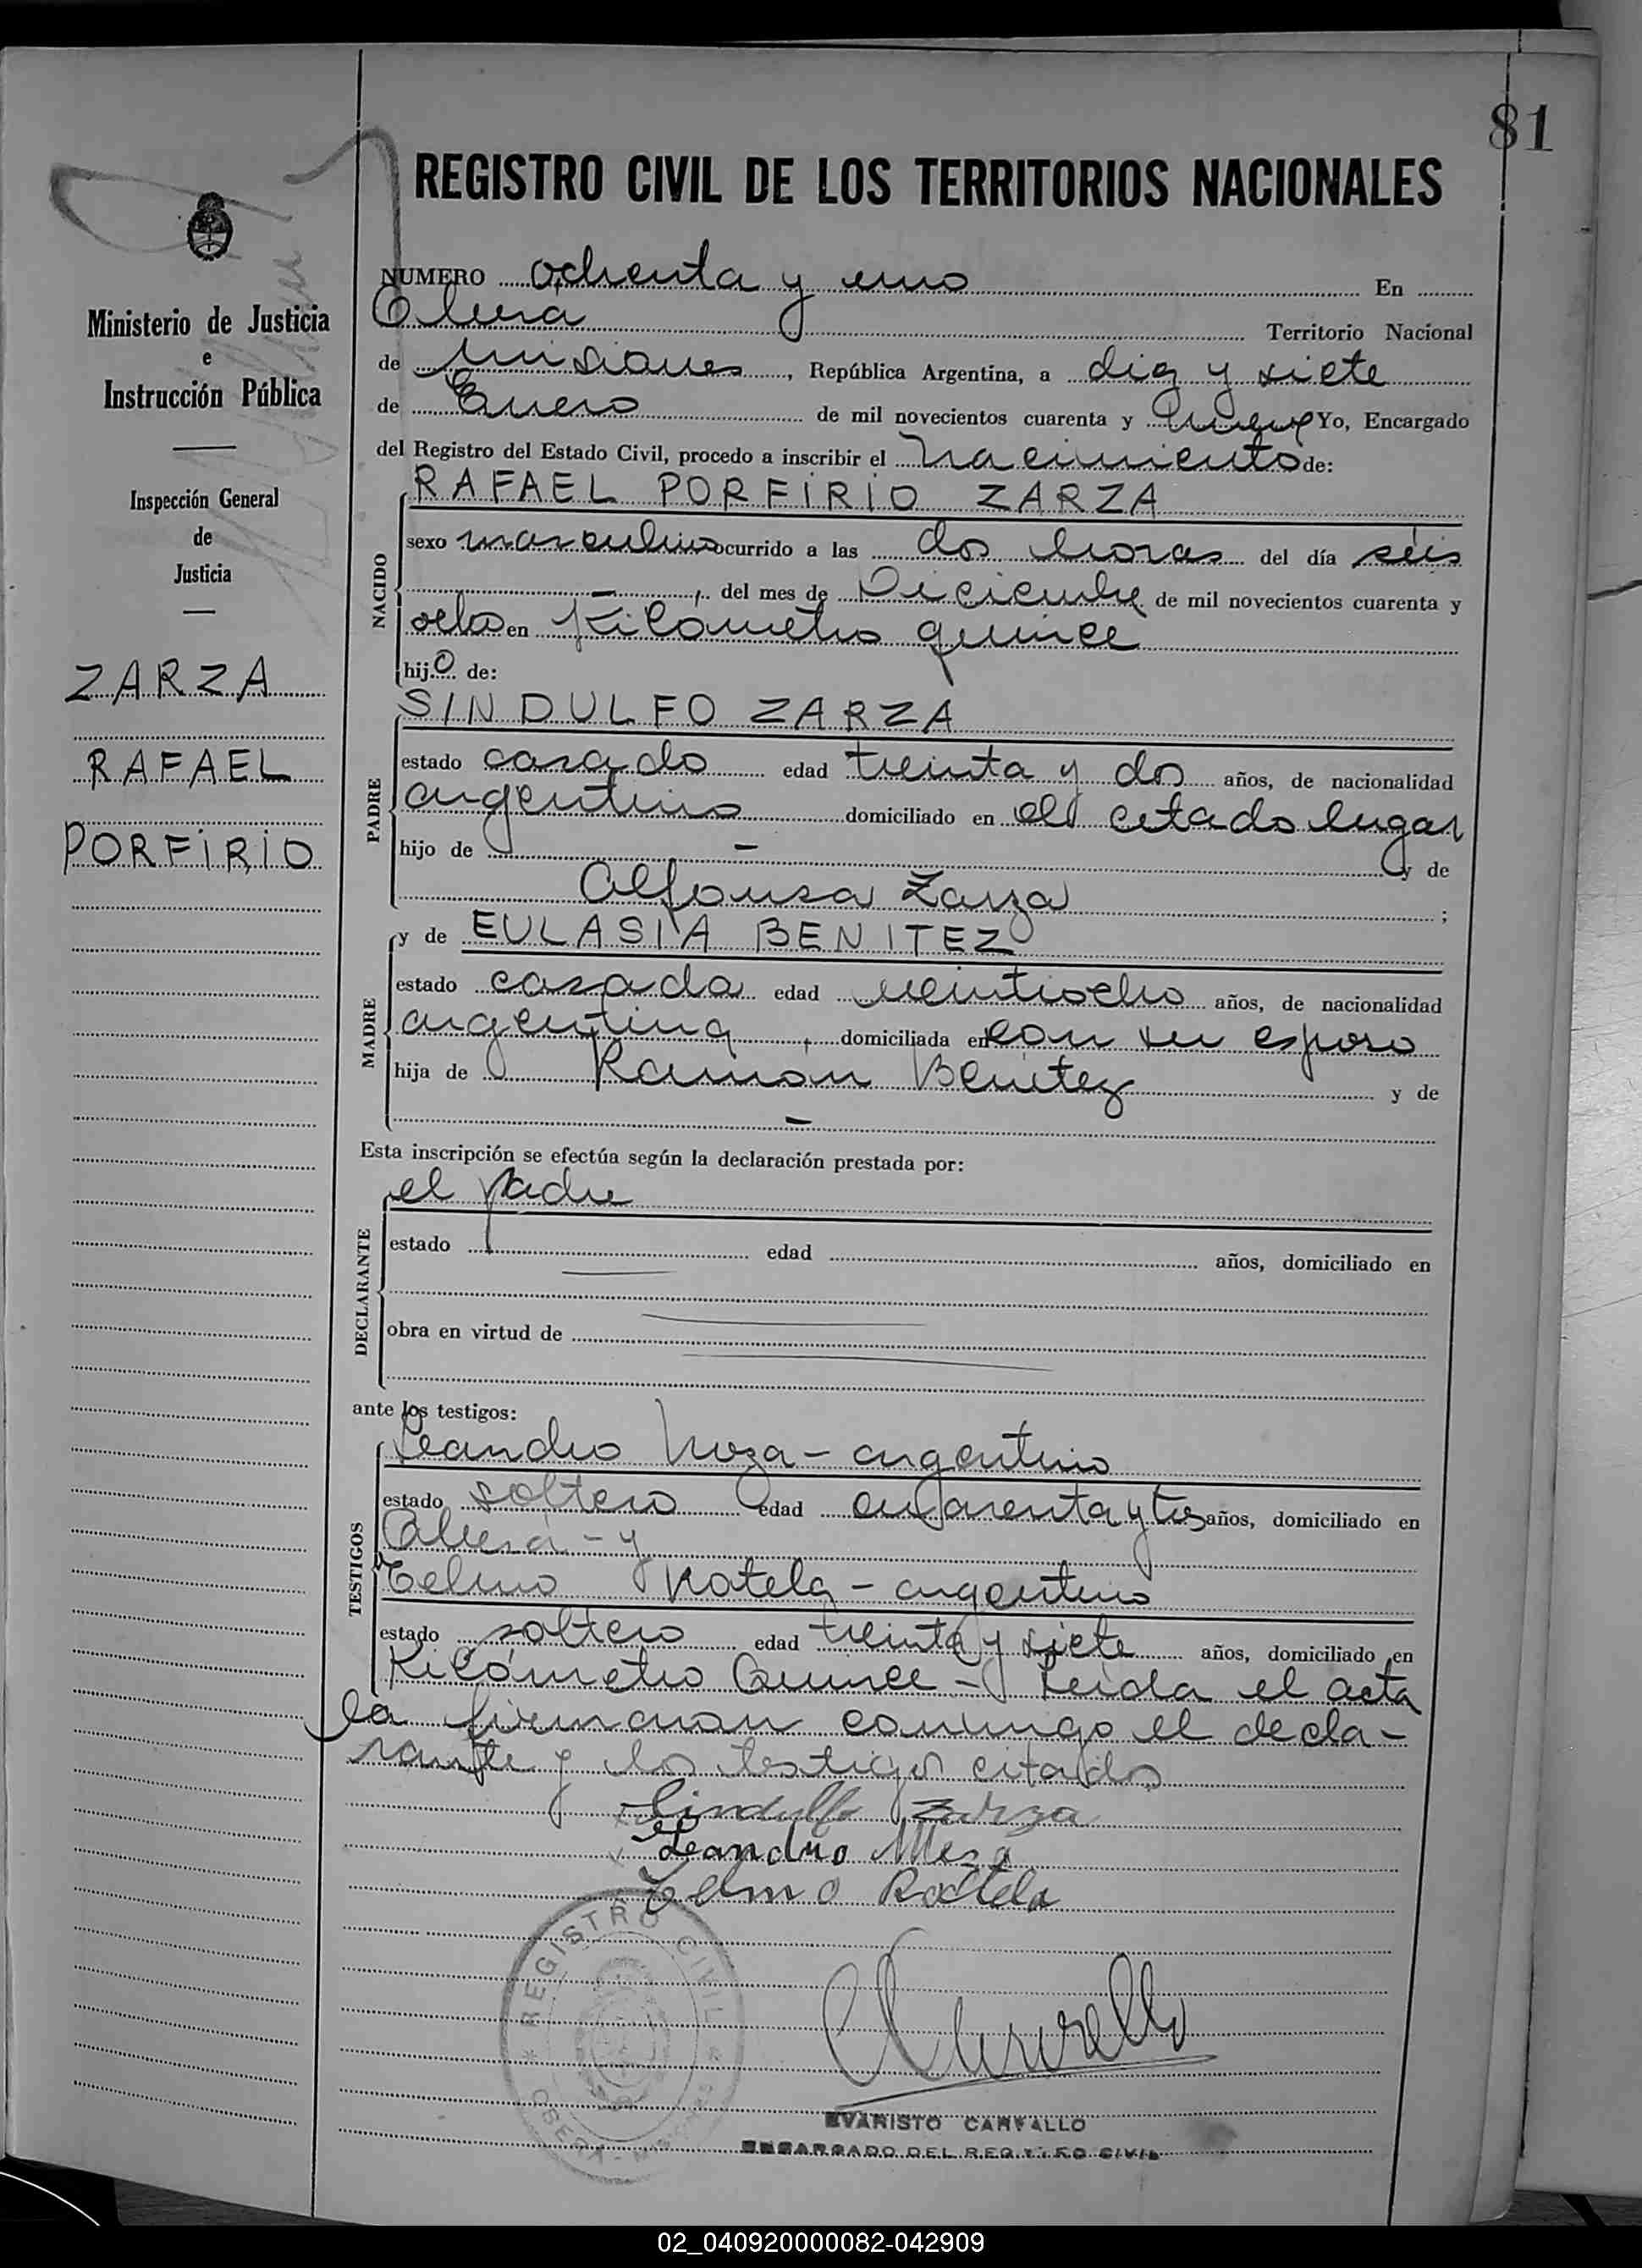 81
REGISTRO CIVIL DE LOS TERRITORIOS NACIONALES
Ministerio de Justicia
e
Instrucción Pública
Inspección General
de
Justicia
ZARZA
RAFAEL
PORFIRIO
NUMERO ochenta y uno En
Oberá Territorio Nacional
de Misiones, República Argentina, a diez y siete
de Enero de mil novecientos cuarenta y nueve Yo, Encargado
del Registro del Estado Civil, procedo a inscribir el nacimiento de:
RAFAEL PORFIRIO ZARZA
NACIDO
sexo masculino ocurrido a las dos horas del día séis
del mes de Diciembre de mil novecientos cuarenta y
ocho en Kilómetro quince
hijo de:
SINDULFO ZARZA
PADRE
estado casado edad treinta y dos años, de nacionalidad
argentino domiciliado en el citado lugar
hijo de — y de
Alfonsa Zarza ;
y de EULASIA BENITEZ
MADRE
estado casada edad veintiocho años, de nacionalidad
argentina, domiciliada en con su esposo
hija de Ramón Benítez y de
—
Esta inscripción se efectúa según la declaración prestada por:
el padre
DECLARANTE
estado edad años, domiciliado en
obra en virtud de
ante los testigos:
Leandro Meza - argentino
TESTIGOS
estado soltero edad cuarenta y tres años, domiciliado en
Oberá - y
Telmo Rotela - argentino
estado soltero edad treinta y siete años, domiciliado en
Kilómetro Quince - Leída el acta
la firmaron conmigo el decla-
rante y los testigos citados
Sindulfo Zarza
Leandro Meza
Telmo Rottela
REGISTRO CIVIL
OBERA - MISIONES
EVARISTO CARVALLO
ENCARGADO DEL REGISTRO CIVIL
02_040920000082-042909